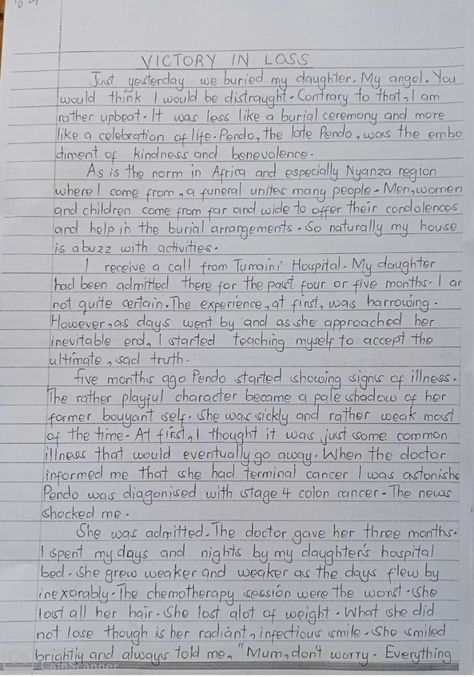 VICTORY IN LOSS
Just yesterday we buried my daughter. My angel. You
would think I would be distraught. Contrary to that, I am
rather upbeat. It was less like a burial ceremony and more
like a celebration of life. Pendo, the late Pendo, was the embo
diment of kindness and benevolence.
As is the norm in Africa and especially Nyanza region
where I come from, a funeral unites many people. Men, women
and children come from far and wide to offer their condolences
and help in the burial arrangements. So naturally my house
is abuzz with activities.
I receive a call from Tumaini Hospital. My daughter
had been admitted there for the past four or five months. I am
not quite certain. The experience, at first, was harrowing.
However, as days went by and as she approached her
inevitable end, I started teaching myself to accept the
ultimate, sad truth.
Five months ago Pendo started showing signs of illness.
The rather playful character became a pale shadow of her
former bouyant self. She was sickly and rather weak most
of the time. At first, I thought it was just some common
illness that would eventually go away. When the doctor
informed me that she had terminal cancer I was astonishe
Pendo was diagonised with stage 4 colon cancer. The news
shocked me.
She was admitted. The doctor gave her three months.
I spent my days and nights by my daughter's hospital
bed. She grew weaker and weaker as the days flew by
inexorably. The chemotherapy session were the worst. She
lost all her hair. She lost alot of weight. What she did
not lose though is her radiant, infectious smile. She smiled
brightly and always told me, "Mum, don't worry. Everything
CamScanner